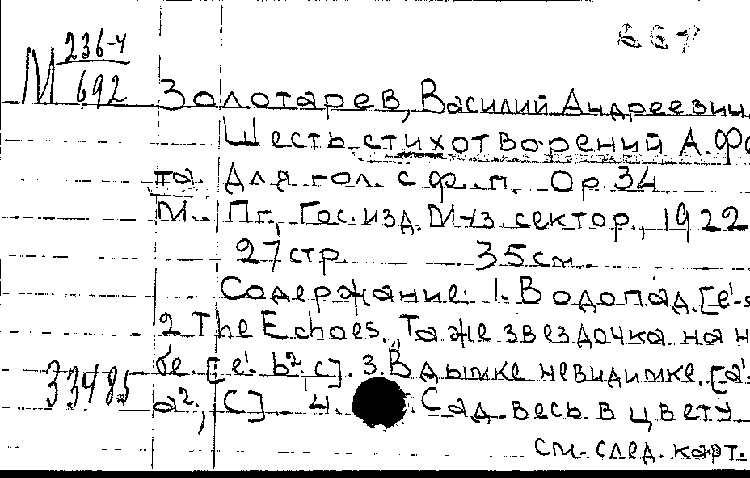 М 236-4
692
661
Золотарев, Василий Андреевич
Шесть стихотворений А. Фе
та. Для гол. с ф.п. Op 34
М. Пг., Гос. изд. Муз сектор., 1922
27 стр. 35 см.
Содержание: 1. Водопад. [e'-
2 The Echoes. Та же звездочка на не
бе [e'. b². c]. 3. В дымке невидимке. [a'.
a², c] 4. Сад весь в цвету
33485
см. след. карт.